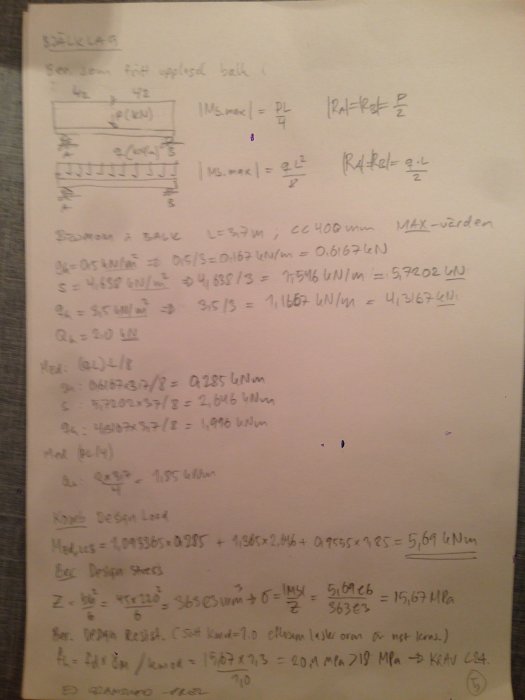 BJÄLKLAG
Ber. som fritt upplagd balk
L/2 L/2
P (kN)
|Ms.max| = PL/4 |RA|=|RB|= P/2
A B
q (kN/m)
|Ms.max| = qL²/8 |RA|=|RB|= q·L/2
A B
BALK L=3,7m ; CC 400mm MAX-värden
gk=0,5 kN/m² => 0,5/3=0,167 kN/m = 0,6167 kN
S = 4,638 kN/m² => 4,638/3 = 1,546 kN/m = 5,7202 kN
qk = 3,5 kN/m² => 3,5/3 = 1,1667 kN/m = 4,3167 kN
Qk = 2,0 kN
Med: (QL)·L/8
gk: 0,6167×3,7/8 = 0,285 kNm
S : 5,7202×3,7/8 = 2,646 kNm
qk : 4,3167×3,7/8 = 1,996 kNm
Med (PL/4)
Qk: 2×3,7/4 = 1,85 kNm
Komb Design Load
= 1,093365×0,285 + 1,365×2,646 + 0,9555×1,85 = 5,69 kNm
Ber Design stress
Z = bh²/6 = 45×220²/6 = 363 E3 mm³ → σ = |MS|/Z = 5,69 E6/363 E3 = 15,67 MPa
Ber. Design Resist. (Sätt kmod=1.0 eftersom laster är mst korta.)
= 15,67×1,3/1,0 = 20,4 MPa > 18 MPa → KRAV C24.
5